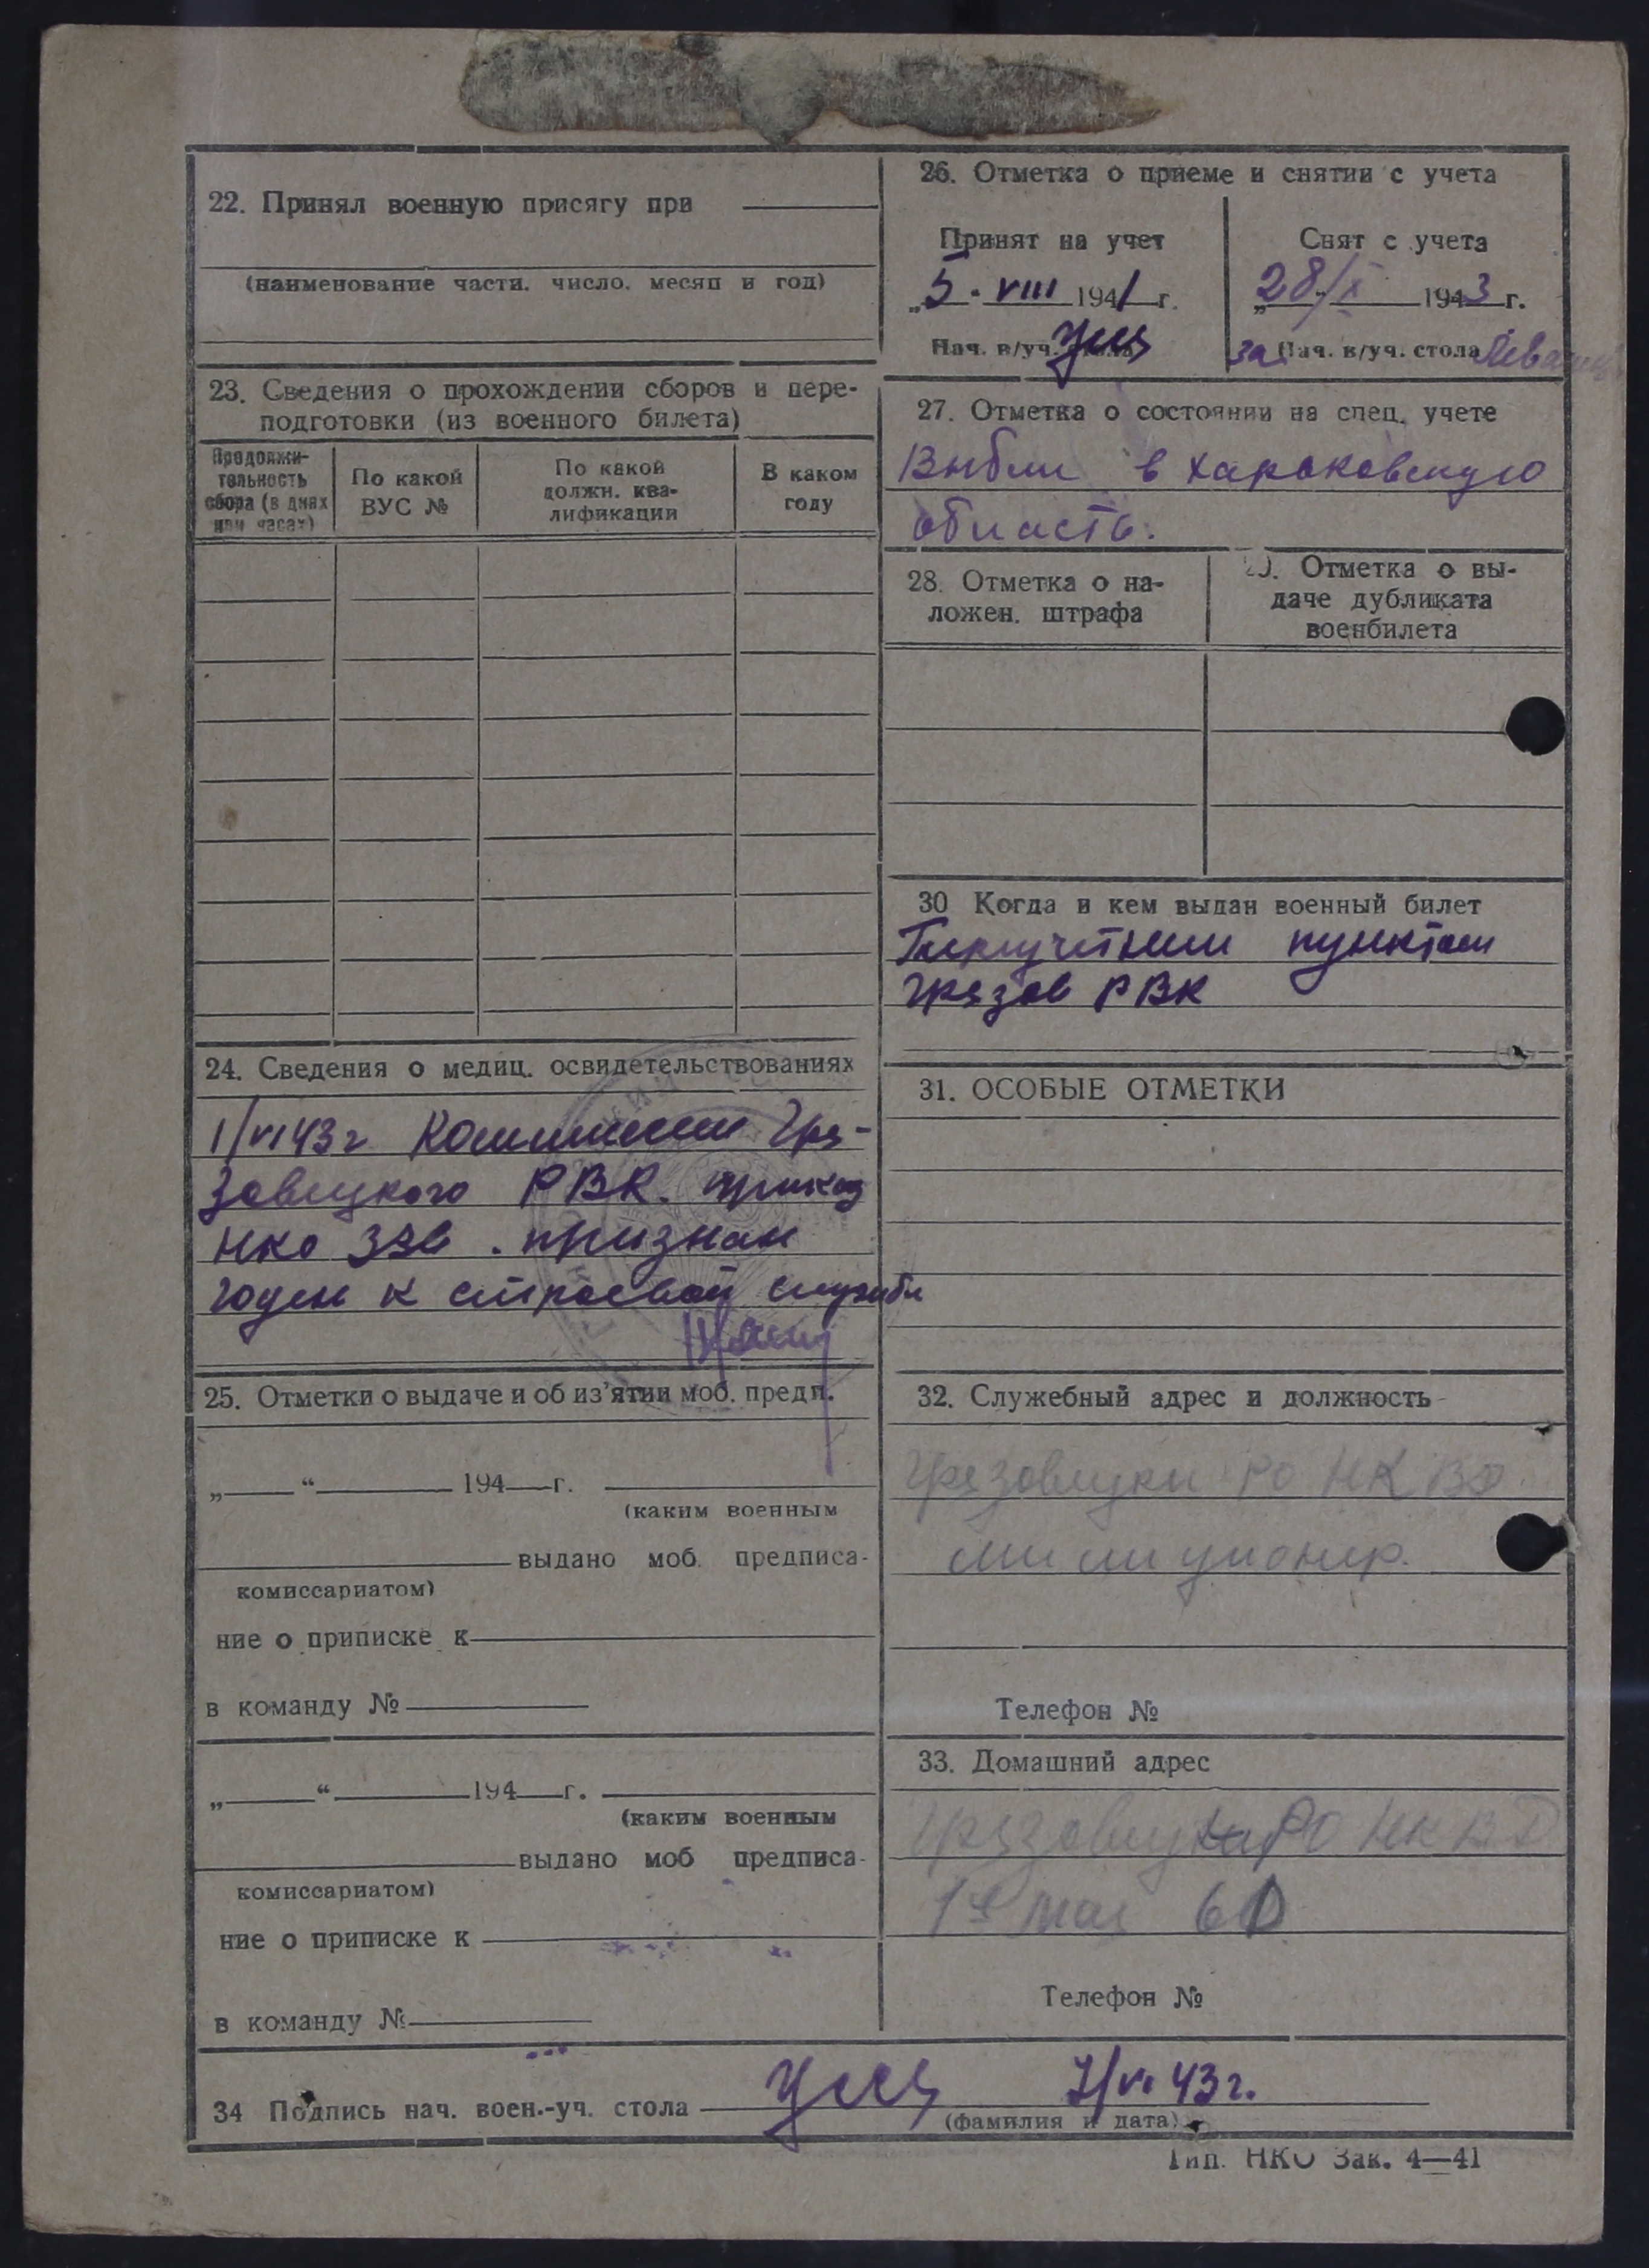 22. Принял военную присягу при
(наименование части, число, месяц и год)
23. Сведения о прохождении сборов и пере-
подготовки (из военного билета)
Продолжи-
тельность
сбора (в днях
или часах)
По какой
ВУС №
По какой
должн. ква-
лификации
В каком
году
24. Сведения о медиц. освидетельствованиях
1/VI 43 г Комиссией Гря-
зовецкого РВК. приказ
НКО 336. признан
годен к строевой службе
25. Отметки о выдаче и об из'ятии моб. предп.
„ “ 194 г.
(каким военным
выдано моб. предписа-
комиссариатом)
ние о приписке к
в команду №
„ “ 194 г.
(каким военным
выдано моб предписа-
комиссариатом)
ние о приписке к
в команду №
26. Отметка о приеме и снятии с учета
Принят на учет
„5 - VIII 1941 г.
Нач. в/уч. стола
Снят с учета
„28/X 1943 г.
за Нач. в/уч. стола
27. Отметка о состоянии на спец. учете
Выбыл в харьковскую
область.
28. Отметка о на-
ложен. штрафа
29. Отметка о вы-
даче дубликата
военбилета
30 Когда и кем выдан военный билет
пунктом
Грязов РВК
31. ОСОБЫЕ ОТМЕТКИ
32. Служебный адрес и должность
Грязовецки РО НКВД
милиционер.
Телефон №
33. Домашний адрес
РО НКВД
1е мая
Телефон №
34 Подпись нач. воен.-уч. стола 7/VI 43 г.
(фамилия и дата)
Тип. НКО Зак. 4—41